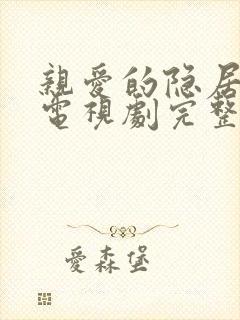 親愛的隐居
電視劇完整
愛森堡